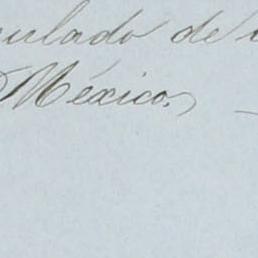 sulado de
México.